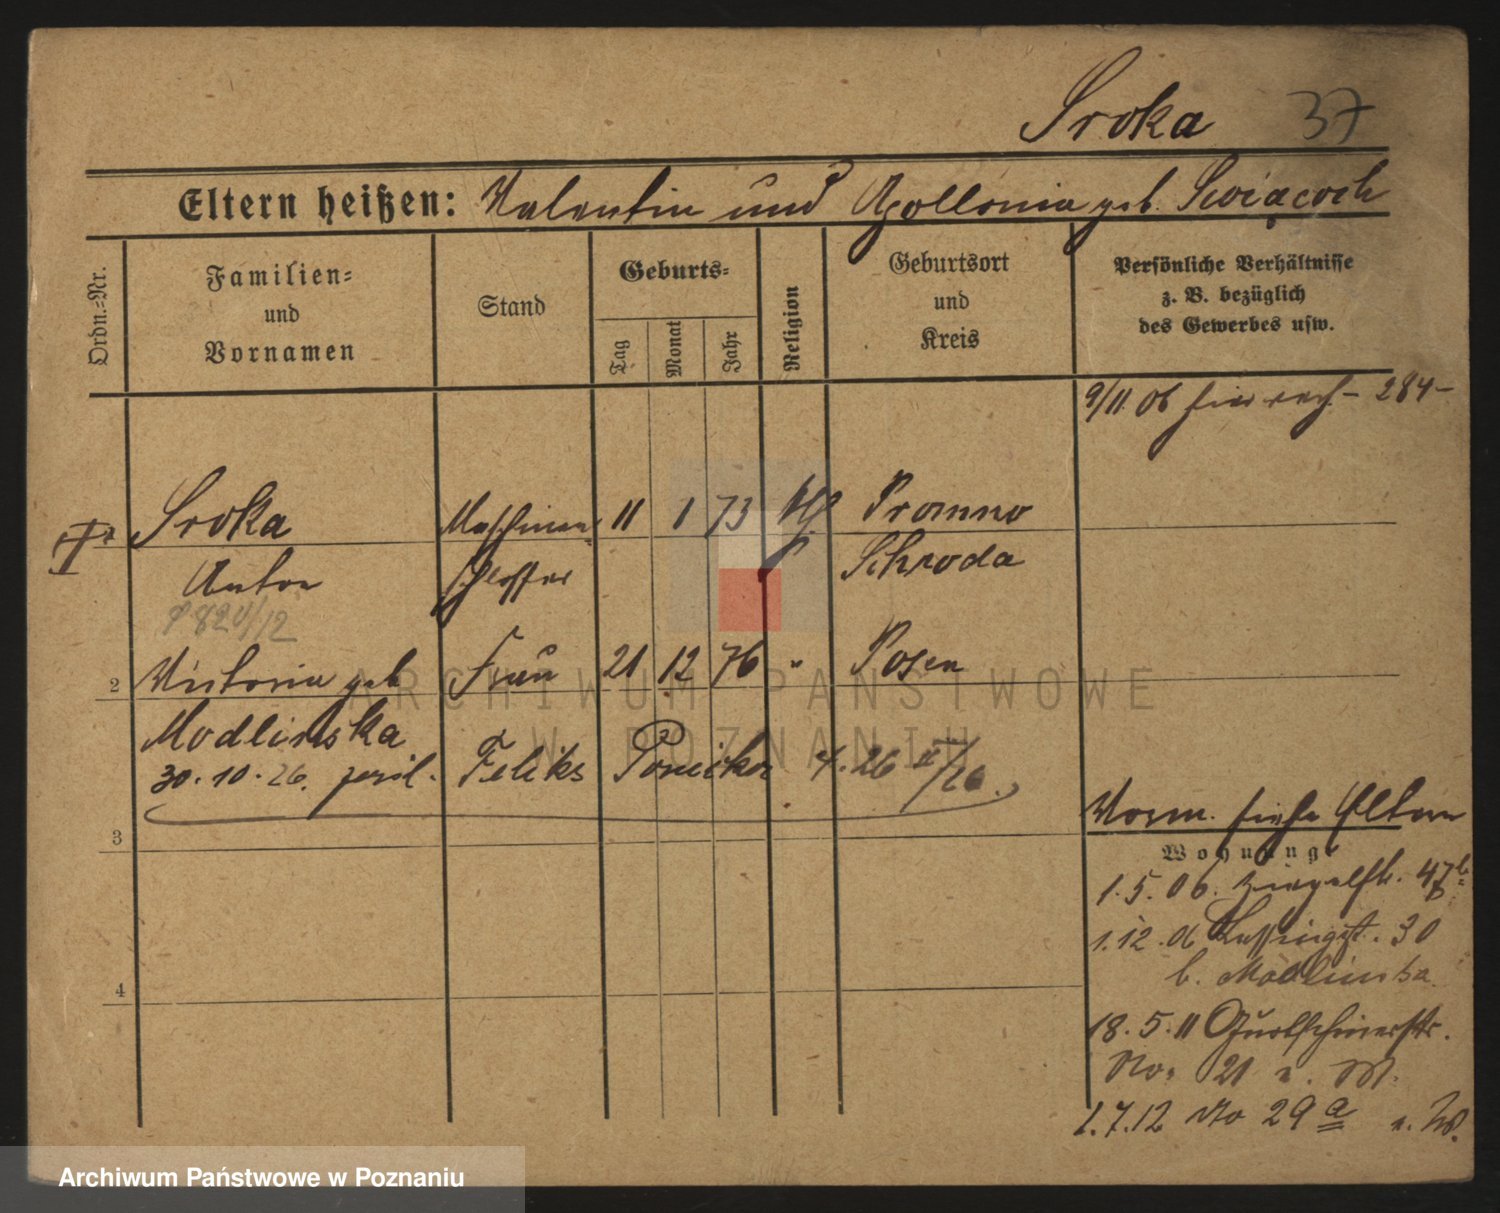 Sroka 37
Eltern heißen: Valentin und Apollonia geb. Swiącoch
Ordn.-Nr.
Familien-
und
Vornamen
Stand
Geburts-
Tag
Monat
Jahr
Religion
Geburtsort
und
Kreis
Persönliche Verhältnisse
z. B. bezüglich
des Gewerbes usw.
9/11. 06 - 284 -
Sroka Maschinen 11 1 73 Promno
Anton schlosser Schroda
P 820/12
2 Victoria geb Frau 21 12 76 " Posen
Modlinska
30. 10. 26. Feliks 4. 26
3
Worm. siehe Eltern
Wohnung:
1. 5. 06. Ziegelstr. 47
1. 12. 06 Lessingst. 30
b. Modlinska
4
18. 5. 11 Gurtschinerstr.
No. 21 n. W.
1. 7. 12 No 29 a n. W.
ARCHIWUM PAŃSTWOWE
W POZNANIU
Archiwum Państwowe w Poznaniu